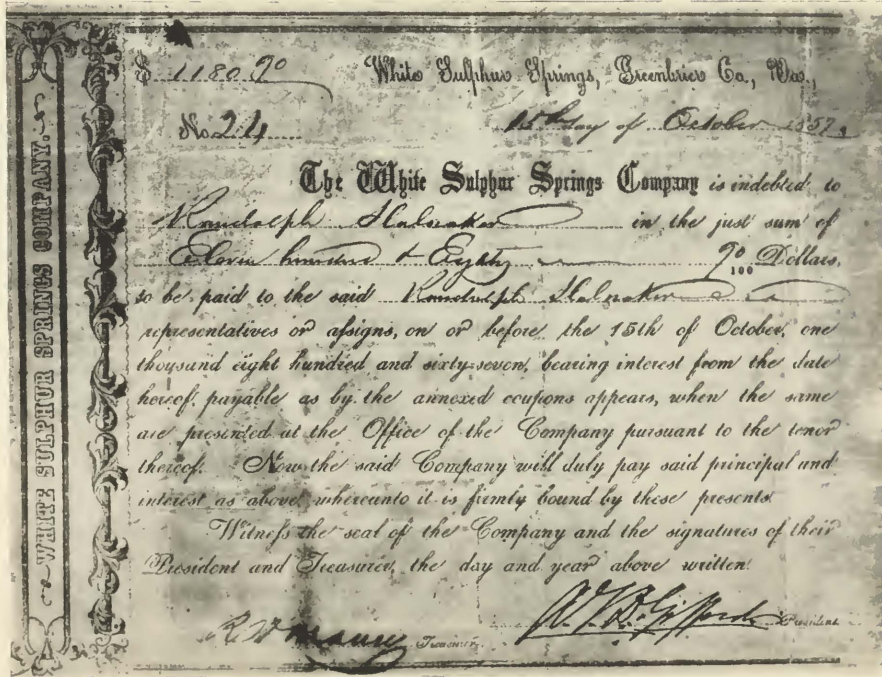 WHITE SULPHUR SPRINGS COMPANY.
$ 1180 90 White Sulphur Springs, Greenbrier Co., Va.,
No. 24 15th day of October 1857.
The White Sulphur Springs Company is indebted to
Randolph in the just sum of
Eleven hundred & Eighty 90/100 Dollars,
to be paid to the said Randolph
representatives or assigns, on or before the 15th of October, one
thousand eight hundred and sixty-seven, bearing interest from the date
hereof, payable as by the annexed coupons appears, when the same
are presented at the Office of the Company pursuant to the tenor
thereof. Now the said Company will duly pay said principal and
interest as above, whereunto it is firmly bound by these presents.
Witness the seal of the Company and the signatures of their
President and Treasurer, the day and year above written.
Treasurer. President